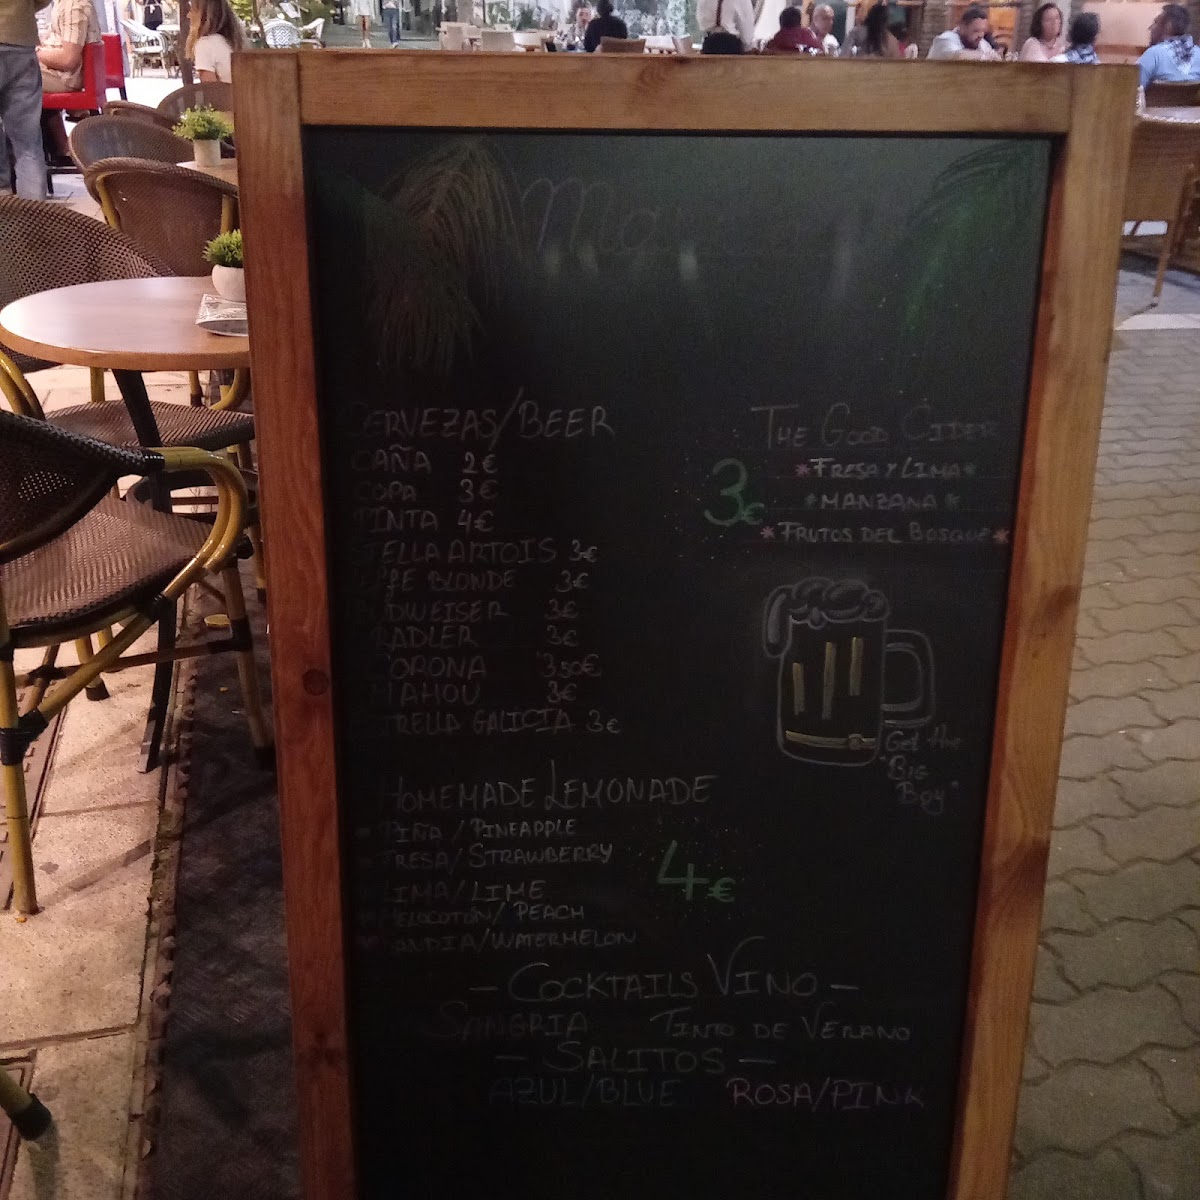 CERVEZAS/BEER
CAÑA 2€
COPA 3€
PINTA 4€
STELLA ARTOIS 3€
BLONDE 3€
BUDWEISER 3€
RADLER 3€
CORONA 3,50€
MAHOU 3€
ESTRELLA GALICIA 3€
THE GOOD CIDER
*FRESA Y LIMA*
*MANZANA*
*FRUTOS DEL BOSQUE*
3€
Get the
"BIG
Boy"
HOMEMADE LEMONADE
PIÑA / PINEAPPLE
FRESA/STRAWBERRY
LIMA/LIME
MELOCOTÓN/PEACH
SANDIA/WATERMELON
4€
- COCKTAILS VINO -
SANGRIA TINTO DE VERANO
- SALITOS -
AZUL/BLUE ROSA/PINK